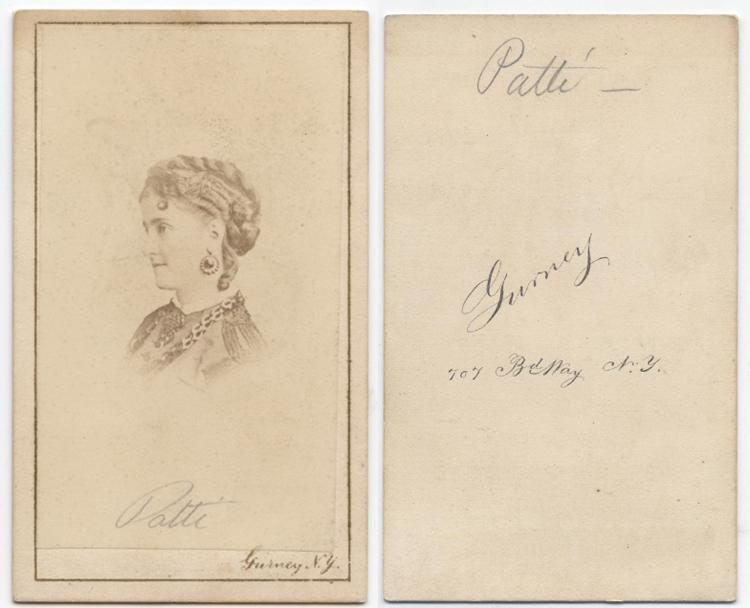 Patti
Gurney N.Y.
Patti —
Gurney
707 Bd.Way N.Y.